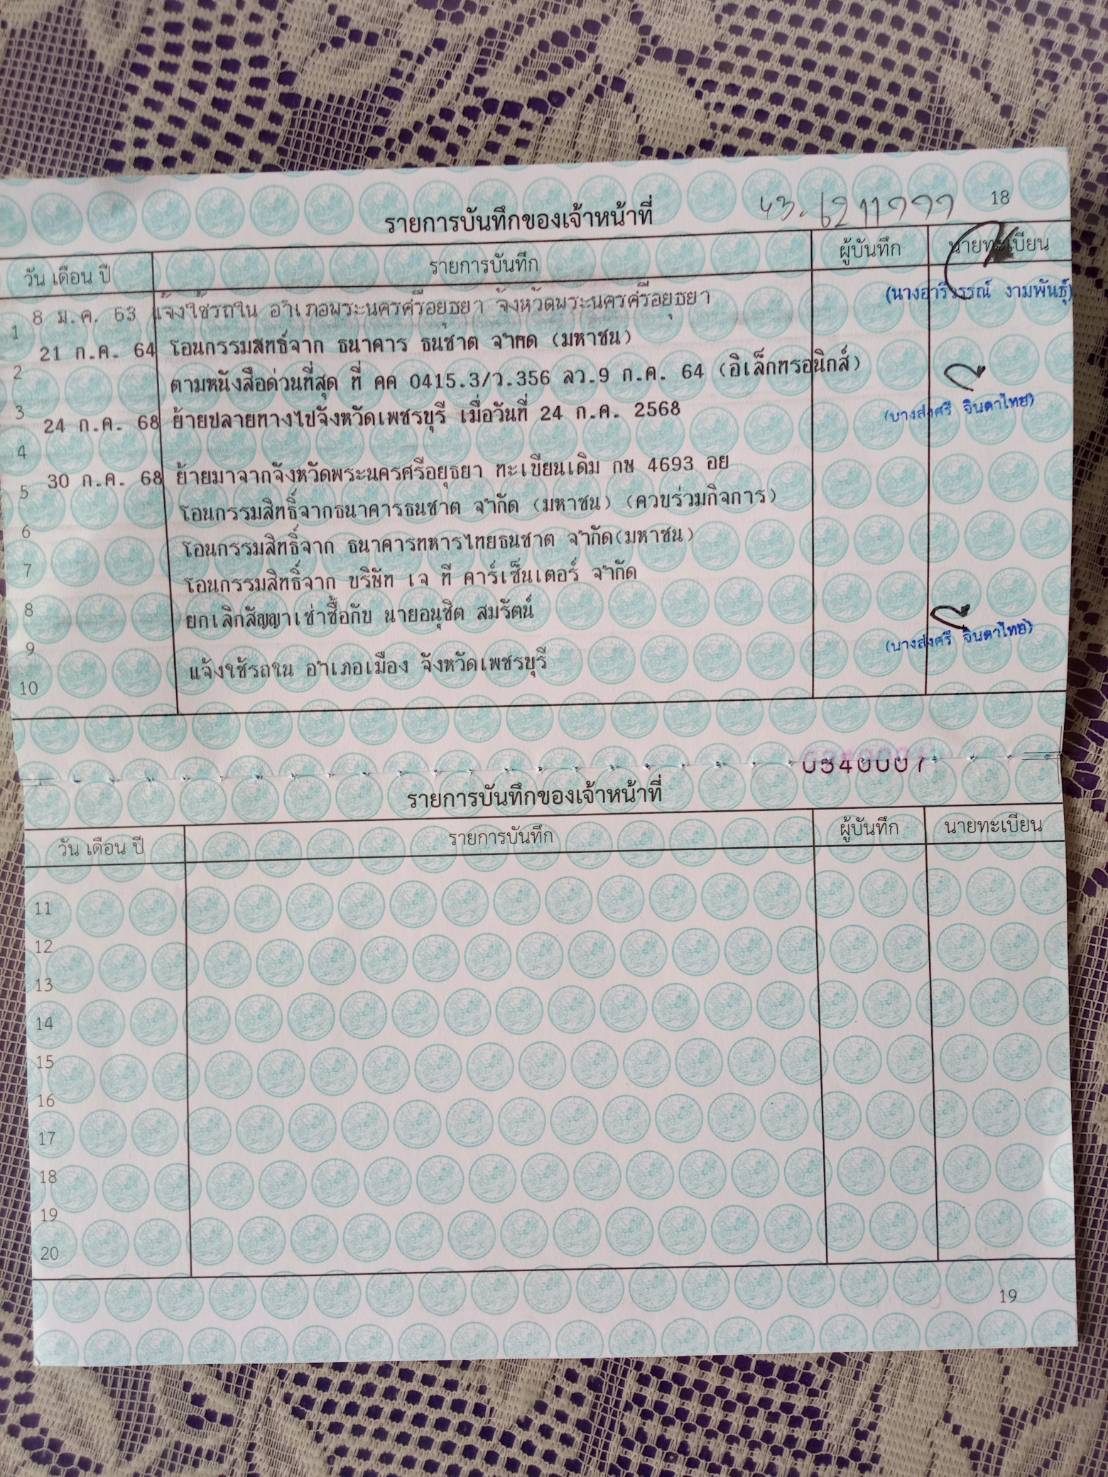 รายการบันทึกของเจ้าหน้าที่ 18
วัน เดือน ปี รายการบันทึก ผู้บันทึก นายทะเบียน
1 8 ม.ค. 63 แจ้งใช้รถใน อำเภอพระนครศรีอยุธยา จังหวัดพระนครศรีอยุธยา (นางอารีวรรณ์ งามพันธุ์)
2 21 ก.ค. 64 โอนกรรมสิทธิ์จาก ธนาคาร ธนชาต จำกัด (มหาชน)
3 ตามหนังสือด่วนที่สุด ที่ คค 0415.3/ว.356 ลว.9 ก.ค. 64 (อิเล็กทรอนิกส์)
4 24 ก.ค. 68 ย้ายปลายทางไปจังหวัดเพชรบุรี เมื่อวันที่ 24 ก.ค. 2568 (นางส่งศรี จินดาไทย)
5 30 ก.ค. 68 ย้ายมาจากจังหวัดพระนครศรีอยุธยา ทะเบียนเดิม กษ 4693 อย
6 โอนกรรมสิทธิ์จากธนาคารธนชาต จำกัด (มหาชน) (ควบร่วมกิจการ)
7 โอนกรรมสิทธิ์จาก ธนาคารทหารไทยธนชาต จำกัด(มหาชน)
8 โอนกรรมสิทธิ์จาก บริษัท เจ ที คาร์เซ็นเตอร์ จำกัด
9 ยกเลิกสัญญาเช่าซื้อกับ นายอนุชิต สมรัตน์
10 แจ้งใช้รถใน อำเภอเมือง จังหวัดเพชรบุรี (นางส่งศรี จินดาไทย)
รายการบันทึกของเจ้าหน้าที่
วัน เดือน ปี รายการบันทึก ผู้บันทึก นายทะเบียน
11
12
13
14
15
16
17
18
19
20
19